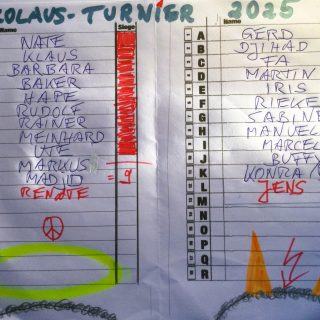 KOLAUS-TURNIER 2025
Name Siege
NATE
KLAUS
BARBARA
BAKER
HAPE
RUDOLF
RAINER
MEINHARD
UTE
MARKUS
MADJID = 9
RENATE
Name
A GERD
B DJIHAD
C FA
D MARTIN
E IRIS
F RIEKE
G SABINE
H MANUEL
I MARCEL
J BUFFY
K KONRA
L JENS
M
N
O
P
Q
R